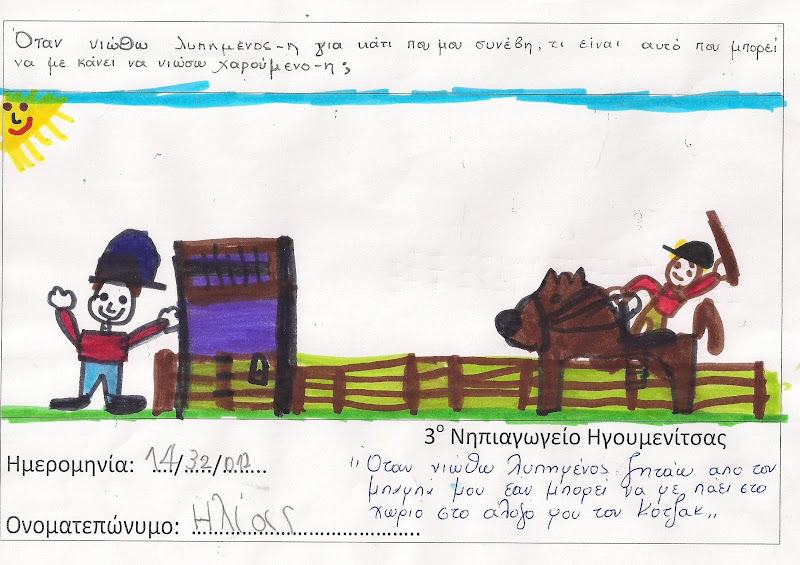 Όταν νιώθω λυπημένος-η για κάτι που μου συνέβη, τι είναι αυτό που μπορεί
να με κάνει να νιώσω χαρούμενο-η;
3ο Νηπιαγωγείο Ηγουμενίτσας
Ημερομηνία: 14/32/
"Όταν νιώθω λυπημένος ζητάω απο τον
μπαμπά μου εαν μπορεί να με πάει στο
χωριό στο άλογο μου τον Κότζακ"
Ονοματεπώνυμο: Ηλίας